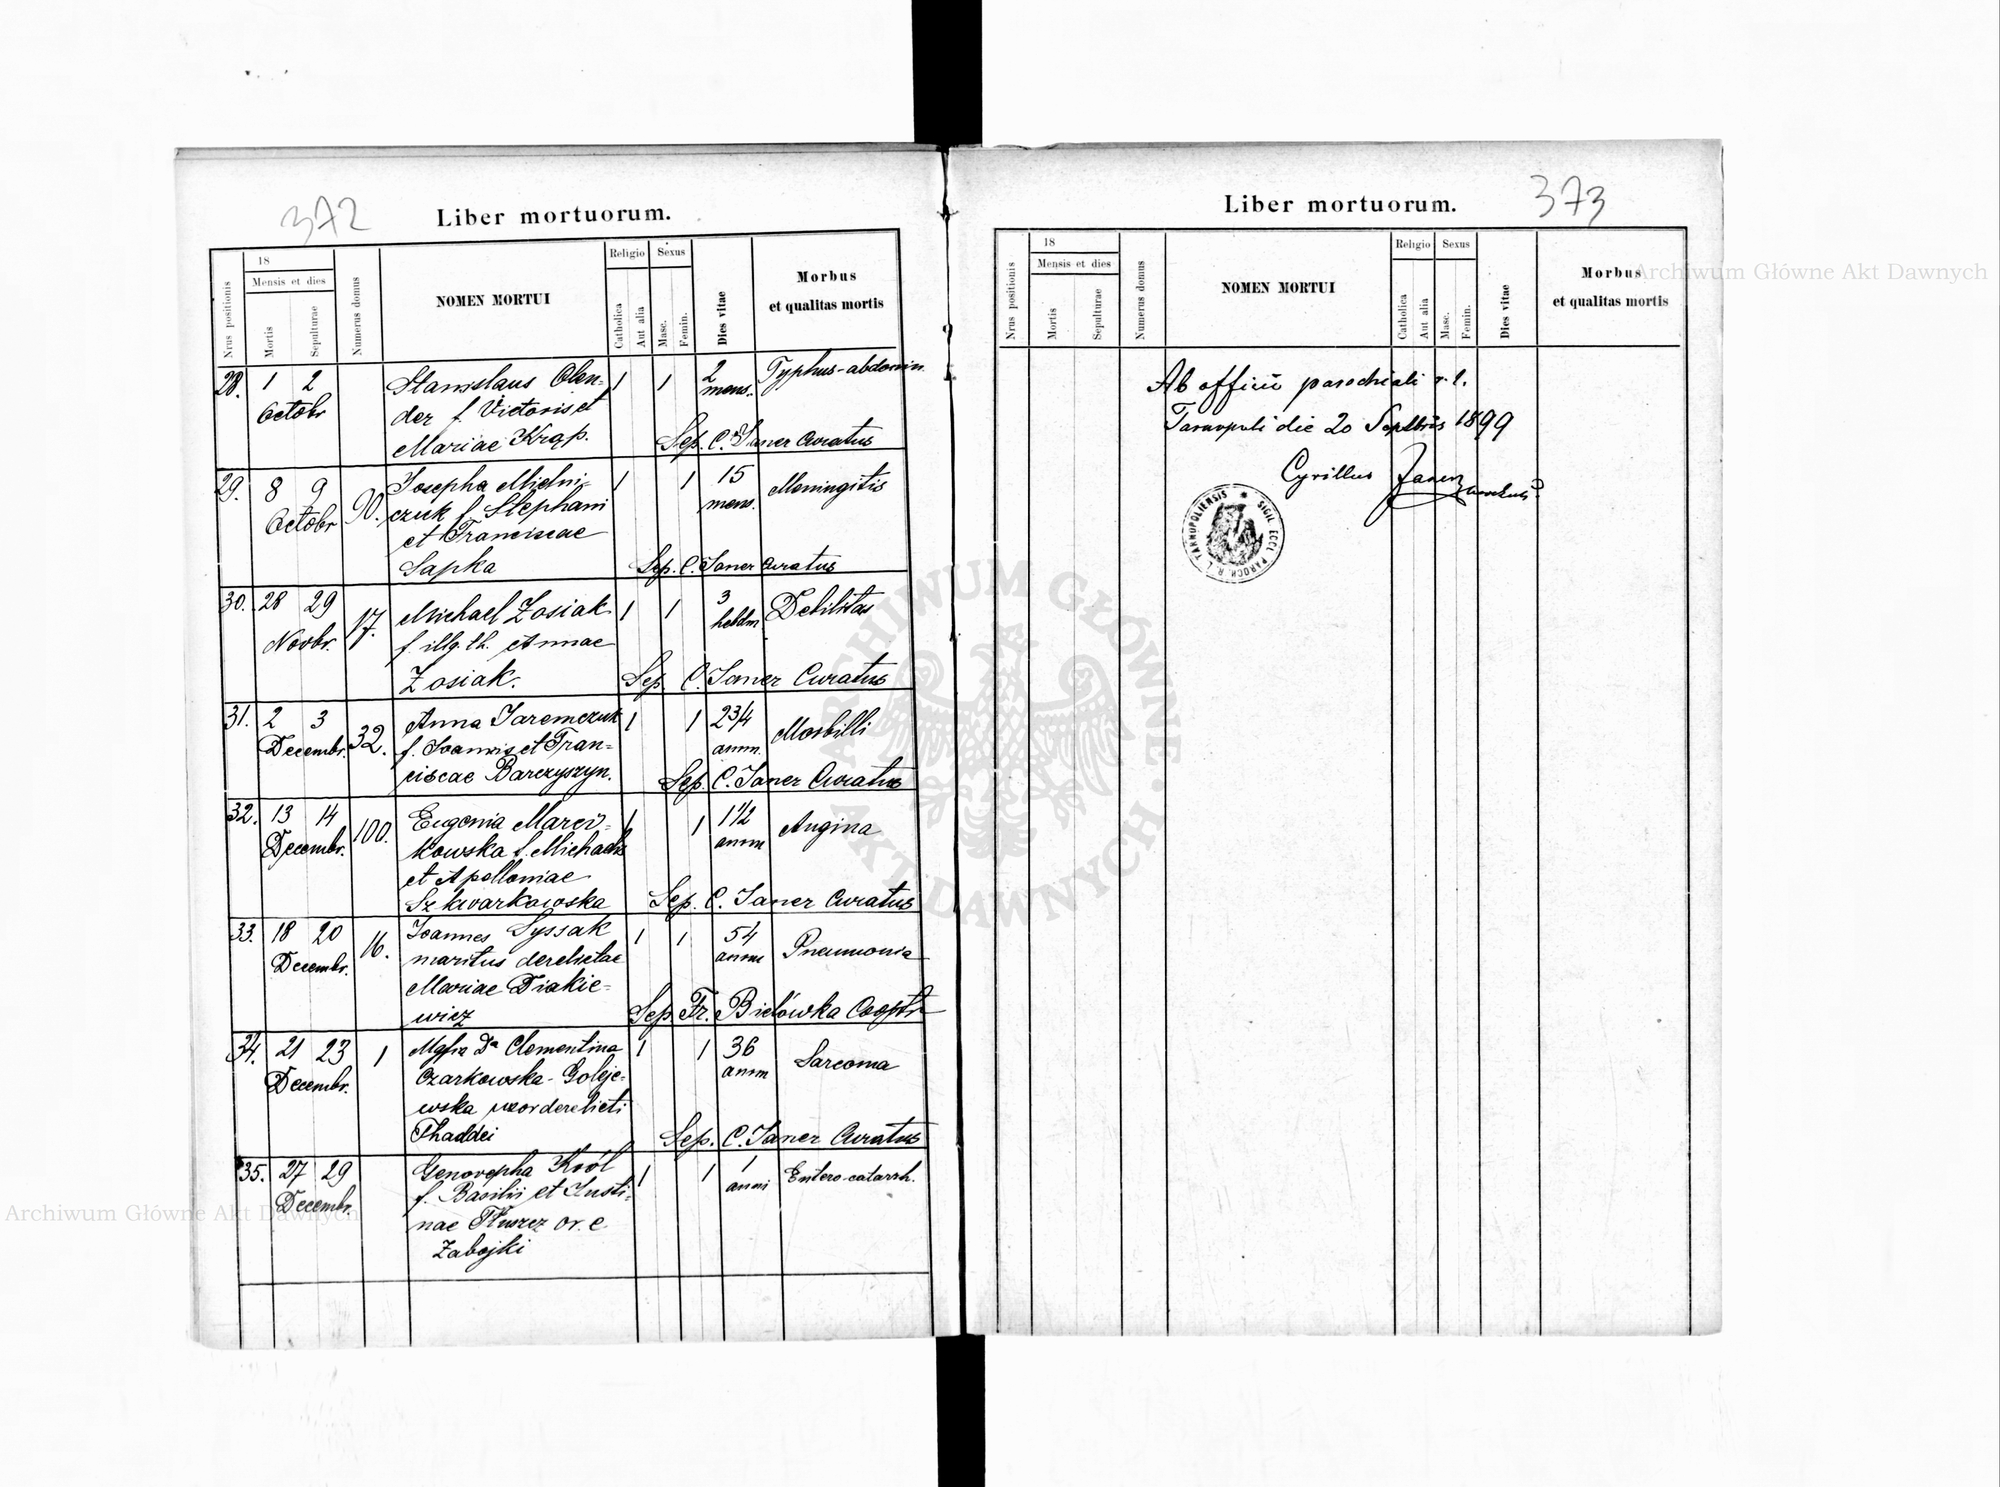 372
Liber mortuorum.
Nrus positionis
18
Mensis et dies
Mortis
Sepulturae
Numerus domus
NOMEN MORTUI
Religio
Catholica
Aut alia
Sexus
Masc.
Femin.
Dies vitae
Morbus
et qualitas mortis
28. 1 2 Stanislaus Olen- 1 1 2 Typhus-abdomin.
Octobr der f. Victoris et mens.
Mariae Krąp. Sep. C. Janer Curatus
29. 8 9 90. Josepha Mielni- 1 1 15 Meningitis
Octobr czuk f. Stephani mens.
et Franciscae
Sapka Sep. C. Janer Curatus
30. 28 29 17. Michael Zosiak 1 1 3 Debilitas
Novbr. f. illg. th. Annae hebdm
Zosiak. Sep C. Janer Curatus
31. 2 3 32. Anna Jaremczuk 1 1 2 3/4 Morbilli
Decembr. f. Joannis et Fran- annn.
ciscae Barczyszyn. Sep. C. Janer Curatus
32. 13 14 100. Eugenia Marci- 1 1 1 1/2 Angina
Decembr. kowska f. Michaelis annn
et Apolloniae
Szkwarkowska Sep. C. Janer Curatus
33. 18 20 16. Joannes Syssak 1 1 54 Pneumonia
Decembr. maritus derelictae annn
Mariae Diakie-
wicz Sep. Fr. Bielówka Cooptr
34. 21 23 1 Mgfca Da Clementina 1 1 36 Sarcoma
Decembr. Czarkowska-Goleje- annn
wska uxor derelicti
Thaddei Sep. C. Janer Curatus
35. 27 29 Genovepha Król 1 1 1 Entero-catarrh.
Decembr. f. Basilii et Justi- anni
nae Tłuszcz or. e
Zabojki
373
Liber mortuorum.
Nrus positionis
18
Mensis et dies
Mortis
Sepulturae
Numerus domus
NOMEN MORTUI
Religio
Catholica
Aut alia
Sexus
Masc.
Femin.
Dies vitae
Morbus
et qualitas mortis
Ab officii parochiali r. l.
Tarnopoli die 20 Septbris 1899
Cyrillus Janer
SIGIL. ECCL. PAROCH. R. L. TARNOPOLIENSIS
ARCHIWUM GŁÓWNE AKT DAWNYCH
Archiwum Główne Akt Dawnych
Archiwum Główne Akt Dawnych